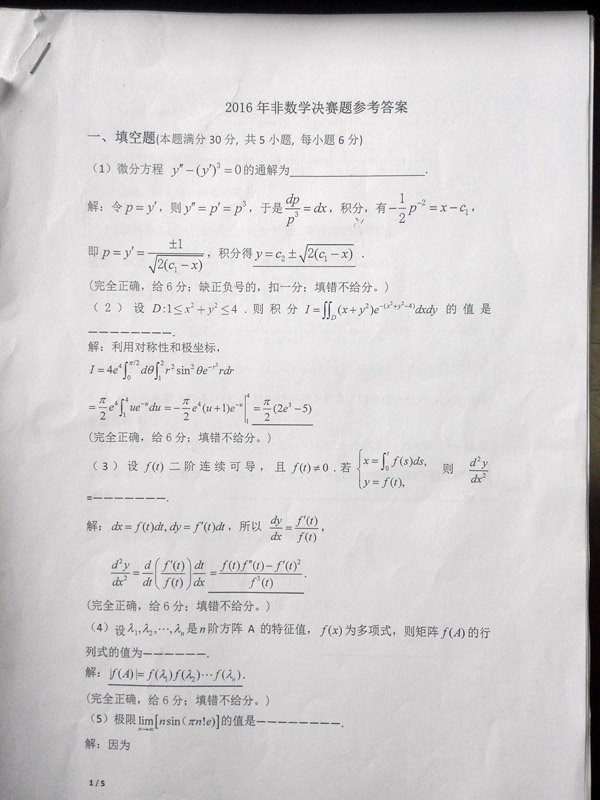 2016 年非数学决赛题参考答案
一、填空题(本题满分 30 分, 共 5 小题, 每小题 6 分)
（1）微分方程 y″ − (y′)³ = 0 的通解为________________.
解：令 p = y′，则 y″ = p′ = p³，于是 dp/p³ = dx，积分，有 −1/2 p⁻² = x − c₁，
即 p = y′ = ±1/√(2(c₁ − x))，积分得 y = c₂ ± √(2(c₁ − x)) .
(完全正确，给 6 分；缺正负号的，扣一分；填错不给分。)
（2）设 D:1 ≤ x² + y² ≤ 4 . 则积分 I = ∬_D (x + y²)e^{−(x²+y²−4)}dxdy 的值是
————————.
解：利用对称性和极坐标，
I = 4e⁴∫₀^{π/2} dθ∫₁² r² sin² θe^{−r²}rdr
= π/2 e⁴∫₁⁴ ue^{−u}du = −π/2 e⁴(u+1)e^{−u}|₁⁴ = π/2 (2e³ − 5)
(完全正确，给 6 分；填错不给分。)
（3）设 f(t) 二阶连续可导，且 f(t) ≠ 0 . 若 { x = ∫₀ᵗ f(s)ds, y = f(t), 则 d²y/dx²
=———————.
解：dx = f(t)dt, dy = f′(t)dt，所以 dy/dx = f′(t)/f(t)，
d²y/dx² = d/dt (f′(t)/f(t)) dt/dx = (f(t)f″(t) − f′(t)²)/f³(t) .
(完全正确，给 6 分；填错不给分。)
（4）设 λ₁, λ₂, ⋯, λₙ 是 n 阶方阵 A 的特征值，f(x) 为多项式，则矩阵 f(A) 的行
列式的值为——————.
解：|f(A)| = f(λ₁)f(λ₂)⋯f(λₙ).
(完全正确，给 6 分；填错不给分。)
（5）极限 lim_{n→∞}[n sin(πn!e)] 的值是————————.
解：因为
1 / 5